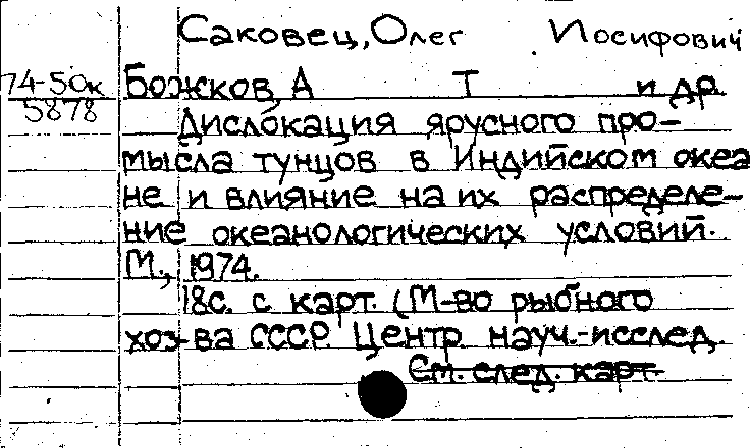 Саковец, Олег Иосифович
74-50к Божков, А Т и др.
5878
Дислокация ярусного про-
мысла тунцов в Индийском океа
не и влияние на их распределе-
ние океанологических условий.
М., 1974.
18с. с карт. (М-во рыбного
хоз-ва СССР. Центр. науч.-исслед.
См. след. карт.